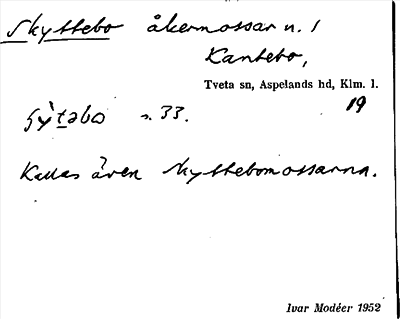 Skyttebo åkermossar n. 1
Kantebo,
Tveta sn, Aspelands hd, Klm. l.
19
s. 33.
Kallas även Skyttebomossarna.
Ivar Modéer 1952